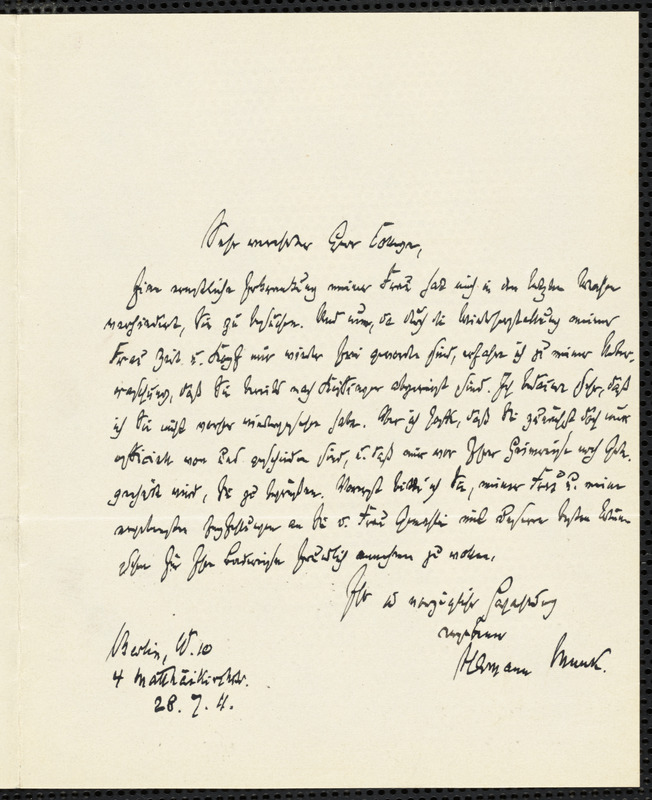 Sehr verehrter Herr College,
Eine ernstliche Erkrankung meiner Frau hat mich in den letzten Wochen
verhindert, Sie zu besuchen. Und nun, da durch die Wiederherstellung meiner
Frau Zeit u. Kopf mir wieder frei geworden sind, erfahre ich zu meiner Ueber-
raschung, daß Sie bereits nach Kissingen abgereist sind. Ich bedaure sehr, daß
ich Sie nicht vorher wiedergesehen habe. Aber ich hoffe, daß Sie zunächst doch nur
officiell von uns geschieden sind, u. daß mir vor Ihrer Heimreise noch Gele-
genheit wird, Sie zu begrüßen. Vorerst bitte ich Sie, meiner Frau u. meine
ergebensten Empfehlungen an Sie u. Frau Gemahlin und unsere besten Wün-
sche für Ihre Badereise freundlich annehmen zu wollen.
Ihr in vorzüglicher Hochachtung
ergebener
Hermann Munk.
Berlin, W. 10
4 Matthäikirchstr.
28. 7. 4.